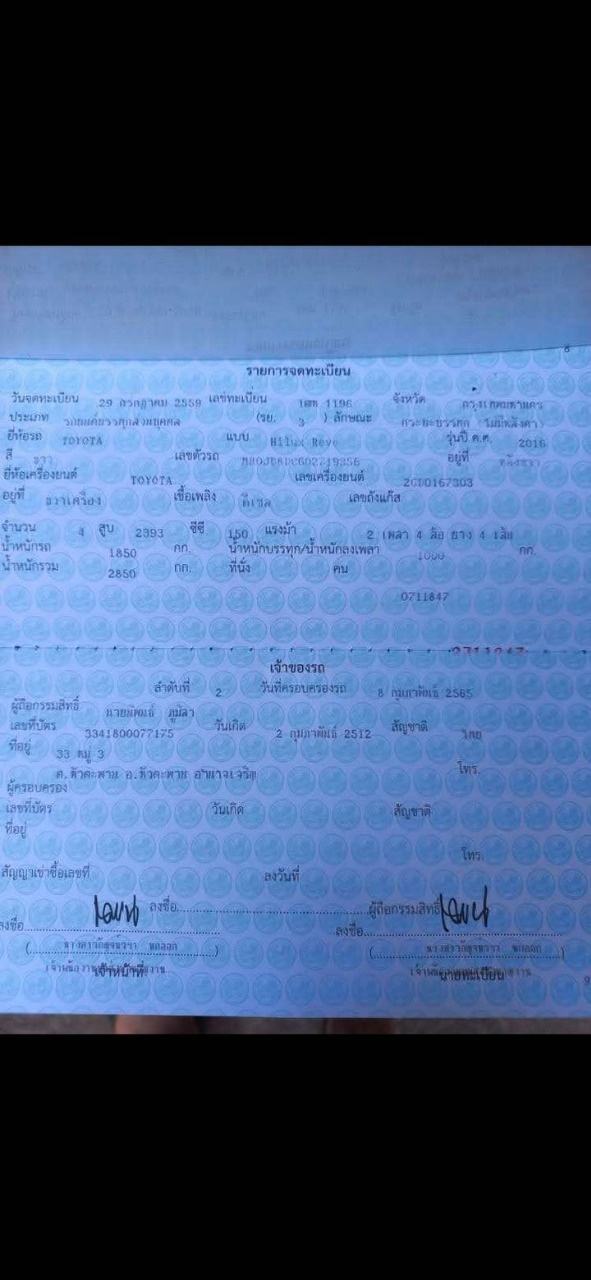 รายการจดทะเบียน
วันจดทะเบียน 29 กรกฎาคม 2559 เลขทะเบียน 1196 จังหวัด กรุงเทพมหานคร
ประเภท รถยนต์บรรทุกส่วนบุคคล (รย. 3 ) ลักษณะ กระบะบรรทุก (ไม่มีหลังคา)
ยี่ห้อรถ TOYOTA แบบ Hilux Revo รุ่นปี ค.ศ. 2016
สี ขาว เลขตัวรถ อยู่ที่
ยี่ห้อเครื่องยนต์ TOYOTA เลขเครื่องยนต์ 2GD0167303
อยู่ที่ ขวาเครื่อง เชื้อเพลิง ดีเซล เลขถังแก๊ส
จำนวน 4 สูบ 2393 ซีซี 150 แรงม้า 2 เพลา 4 ล้อ ยาง 4 เส้น
น้ำหนักรถ 1850 กก. น้ำหนักบรรทุก/น้ำหนักลงเพลา 1000 กก.
น้ำหนักรวม 2850 กก. ที่นั่ง คน
0711847
เจ้าของรถ
ลำดับที่ 2 วันที่ครอบครองรถ 8 กุมภาพันธ์ 2565
ผู้ถือกรรมสิทธิ์ นาย
เลขที่บัตร 3341800077175 วันเกิด 2 กุมภาพันธ์ 2512 สัญชาติ ไทย
ที่อยู่ 33 หมู่ 3
ต.หัวตะพาน อ.หัวตะพาน อำนาจเจริญ โทร.
ผู้ครอบครอง
เลขที่บัตร วันเกิด สัญชาติ
ที่อยู่
โทร.
สัญญาเช่าซื้อเลขที่ ลงวันที่
ลงชื่อ ผู้ถือกรรมสิทธิ์
ลงชื่อ ลงชื่อ
เจ้าหน้าที่ นายทะเบียน